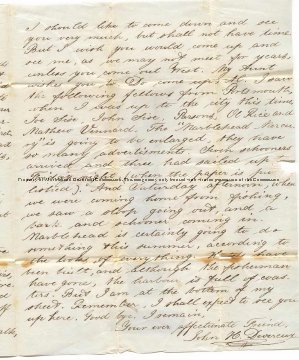 I should like to come down and see
you very much, but shall not have time.
But I wish you would come up and
see me, as we may not meet for years,
unless you come out West. My Aunt
wishes you to do come up. I saw
the following fellows from Portsmouth,
when I was up to the city this time,
Joe Sise, John Sise, Parsons, Al Rice and
Mathew Vennard. The "Marblehead
is going to be enlarged, they have
so many advertisements. Three schooners
arrived and three had sailed up
when the paper was
). And Saturday afternoon, when
we were coming home from fishing,
we saw a sloop going out, and a
bark and schooner coming in.
Marblehead is certainly going to do
something this summer, according to
the looks of everything.
been built, and although the fishermen
have gone, the harbour is full of coas-
ters. But I am at the bottom of my
sheet. Remember, I shall expect to see you
up here. Good bye. I remain,
Your ever affectionate Friend,
John H. Devereux